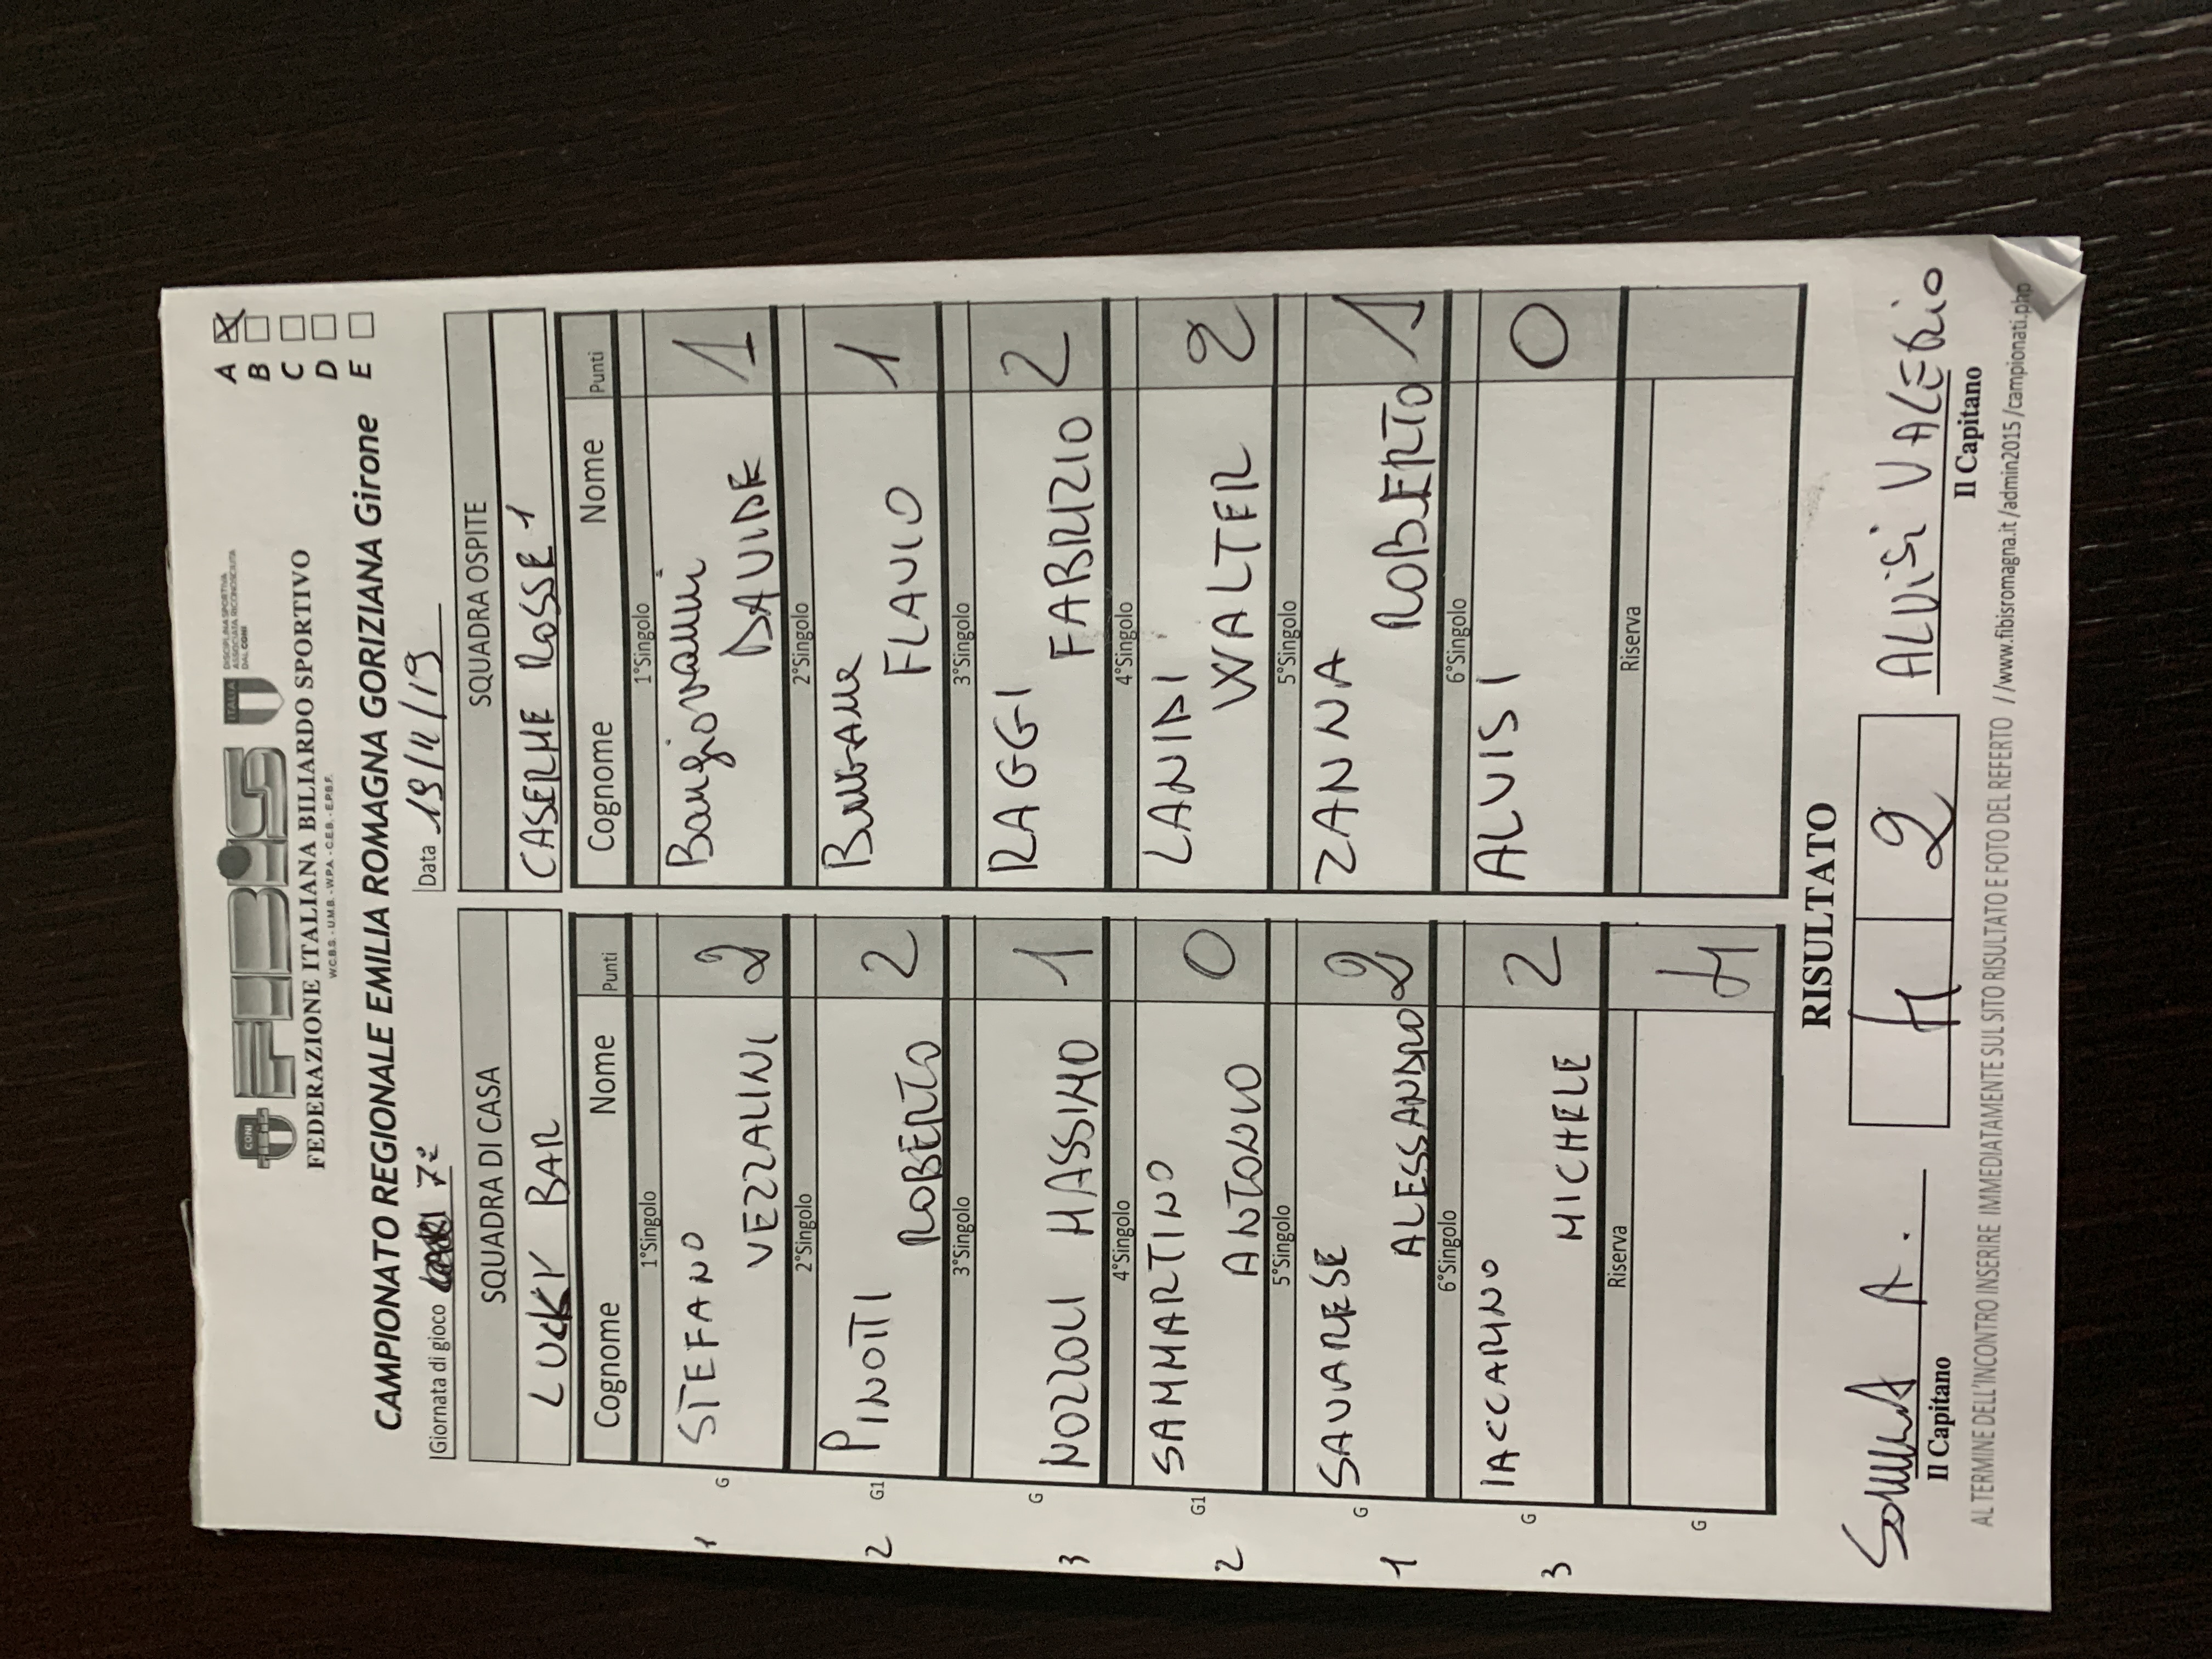 CONI
FIBiS
ITALIA
DISCIPLINA SPORTIVA
ASSOCIATA RICONOSCIUTA
DAL CONI
FEDERAZIONE ITALIANA BILIARDO SPORTIVO
W.C.B.S. - U.M.B. - W.P.A. - C.E.B. - E.P.B.F.
CAMPIONATO REGIONALE EMILIA ROMAGNA GORIZIANA Girone
A X
B
C
D
E
Giornata di gioco 7ª
Data 19/11/19
SQUADRA DI CASA
LUCKY BAR
Cognome Nome Punti
1°Singolo
1 G STEFANO VEZZALINI 2
2°Singolo
2 G1 PINOTTI ROBERTO 2
3°Singolo
3 G NOZZOLI MASSIMO 1
4°Singolo
2 G1 SAMMARTINO ANTONIO 0
5°Singolo
1 G SAVARESE ALESSANDRO 2
6°Singolo
3 G IACCARINO MICHELE 2
Riserva
G 4
SQUADRA OSPITE
CASERME ROSSE 1
Cognome Nome Punti
1°Singolo
Bongiovanni DAVIDE 1
2°Singolo
FLAVIO 1
3°Singolo
RAGGI FABRIZIO 2
4°Singolo
LANDI WALTER 2
5°Singolo
ZANNA ROBERTO 1
6°Singolo
ALVISI 0
Riserva
RISULTATO
4 2
A.
Il Capitano
ALVISI VALERIO
Il Capitano
AL TERMINE DELL'INCONTRO INSERIRE IMMEDIATAMENTE SUL SITO RISULTATO E FOTO DEL REFERTO //www.fibisromagna.it/admin2015/campionati.php